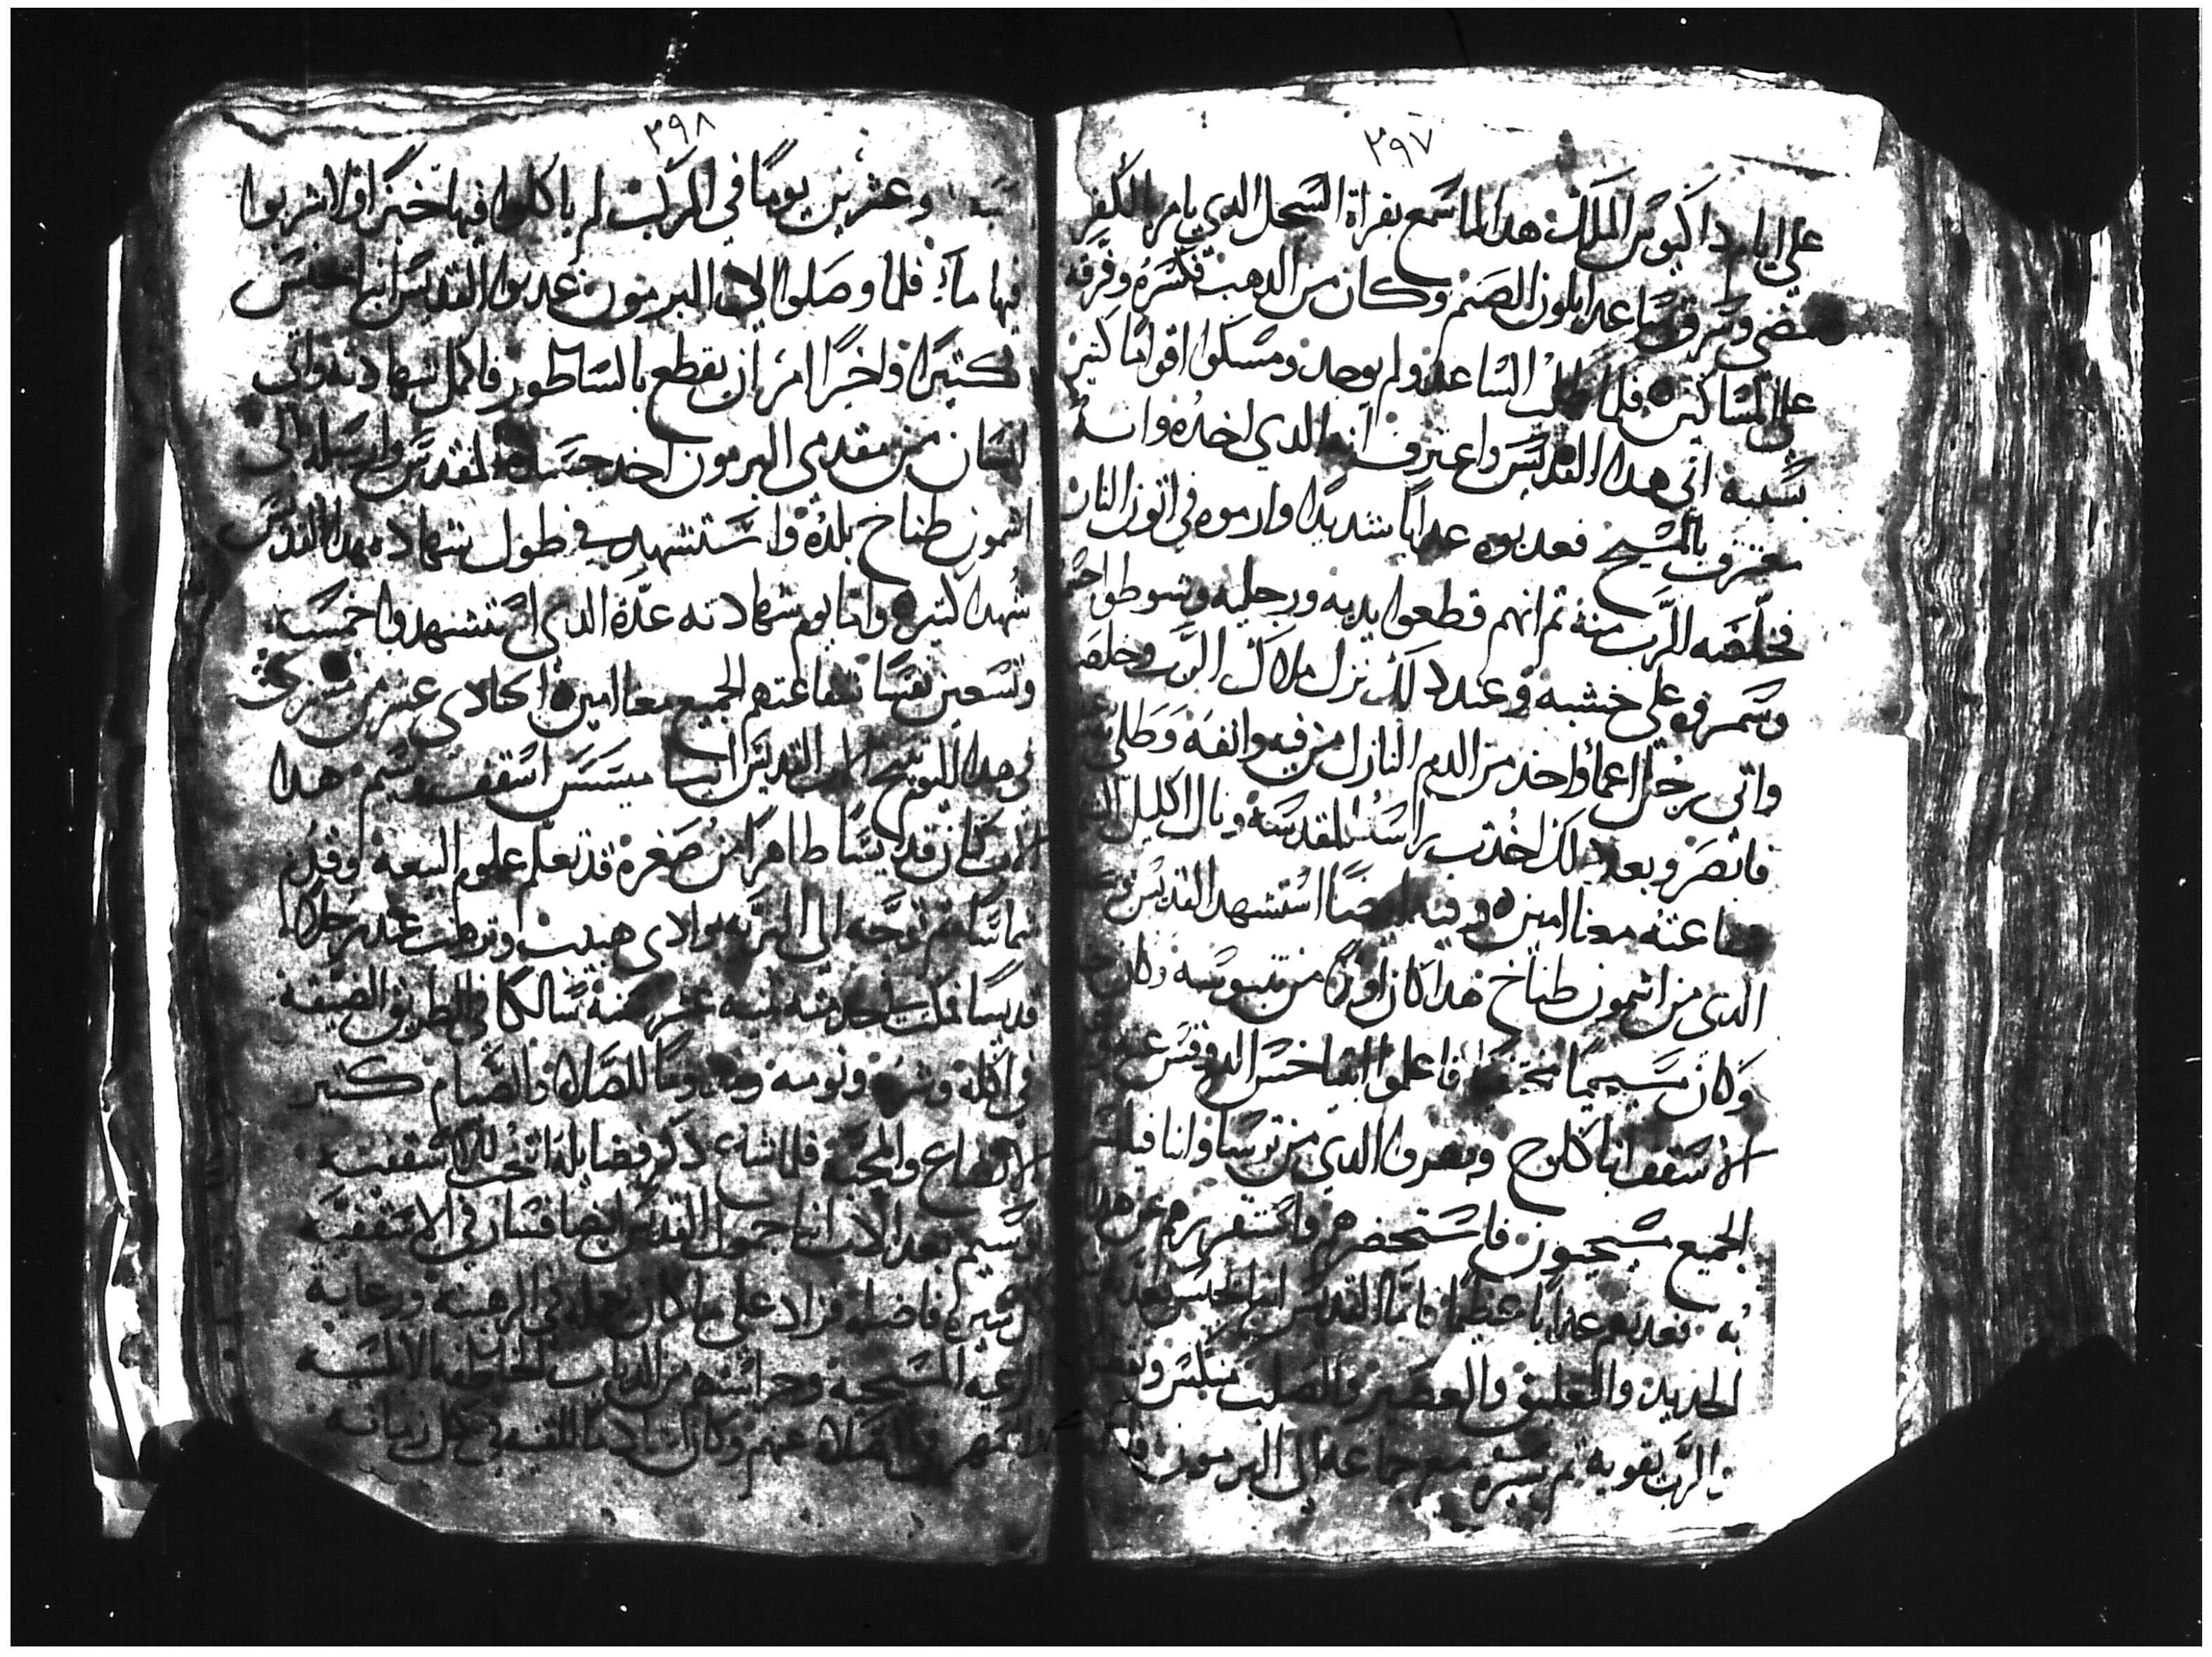 ٣٩٧
على ايام داكيوس الملك هدا لما سمع بقراة السجل الدي يامر بالكفر
مضى وسرق ساعد ابلون الصنم وكان من الدهب فكسره وفرقه
على المساكين فلما طلب الساعد ولم يوجد ومسكوا اقواما كتير
بسببه اتى هدا القديس واعترف انه الدي اخده وانه
معترف بالمسيح فعدبوه عدابا شديدا وارموه في اتون النار
فخلصه الرب منه تم انهم قطعوا يديه ورجليه وشوطوا
وسمروه على خشبه وعند دلك نزل ملاك الرب وخلصه
واتى رجل اعما واخد من الدم النازل من فيه وانفه وطلى
فابصر وبعد دلك اخدت راسه المقدسه ونال الاكليل
شفاعته معنا امين وفيه ايضا استشهد القديس
الدى من اشمون طناح هدا كان اولا من تنبوسه وكان
وكان مسيحيا فاعلموا انبا خنس الدوقس
الاسقف انبا كلوج وبصرفا الدى من ترسا وانبا فيلبس
الجميع مسيحيون فاستحضرهم واستقررهم عن هدا
به فعدبهم عدابا عظيما فاما القديس انبا خنس
الحديد والتعليق والعصير والصلب منكس
والرب يقويه تم سيره مع جماعه الى البرمون
٣٩٨
وعشرين يوما في المركب لم ياكلوا فيها خبزا ولا شربوا
فيها ماء فلما وصلوا الى البرمون عدبوا القديس انبا خنس
كتيرا واخرا امر ان يقطع بالساطور فاكمل شهادته واتى
انسان من مقدمى البرمون اخد جسده المقدس وارسله الى
اشمون طناح بلده واستشهد في طول شهادة هدا القديس
شهدا كتير واما يوم شهادته عدة الدى استشهدوا خمسه
وتسعين نفسا شفاعتهم الجميع معنا امين الحادى عشر من
في هدا اليوم تنيح الاب القديس انبا اسقف وسيم هدا
الاب كان قديسا طاهرا من صغره قد تعلم علوم البيعه وقدم
شماسا تم توجه الى البريه بوادى هبيب وترهب عند رجلا
قديسا فمكت في خدمته تمنيه عشر سنة سالكا في الطريق الضيقه
في اكله وشربه ونومه ومداوما للصلاه والصيام كتير
الاتضاع والمحبه فلما شاع دكر فضايله انتخب للاسقفيه
وسيم بعد الاب انبا جمول القديس ايضا فسار في الاسقفيه
سيرة فاضله وزاد على ما كان يعمله في الرهبنه ورعاية
الرعيه المسيحيه وحراستهم من الدياب الخاطفه الانسيه
والصلاه عنهم وكان في كل زمانه